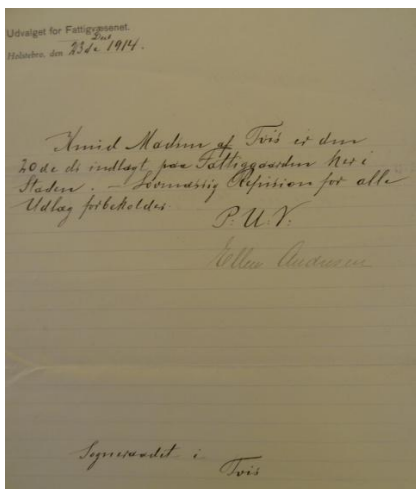 Udvalget for Fattigvæsenet.
Holstebro, den 23de Dec 1914.
Knud Madsen af Tvis er den
20de ds indlagt paa Fattiggaarden her i
Staden. – Lovmæssig Refusion for alle
Udlæg forbeholdes.
P. U. V.
Ellen Andersen
Sogneraadet i
Tvis